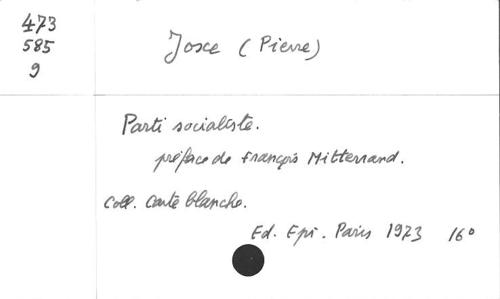 473
585
9
Josce (Pierre)
Parti socialiste.
préface de François Mitterrand.
Coll. Carte blanche.
Ed. Epi. Paris 1973 16°